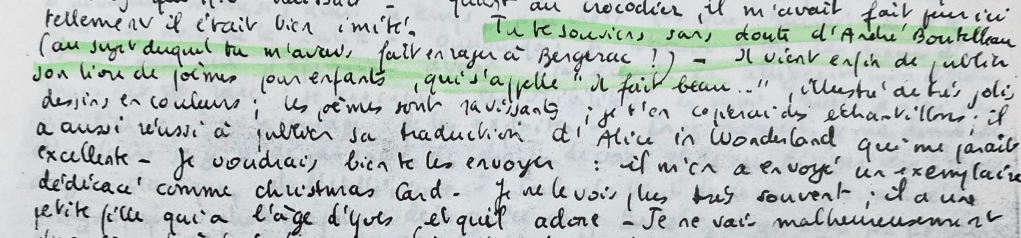 au crocodile, il m'avait fait
tellement il était bien imité. Tu te souviens sans doute d'André Boutelleau
(au sujet duquel tu m'avais fait enrager à Bergerac !) - Il vient enfin de publier
son livre de poèmes pour enfants, qui s'appelle "il fait beau...", illustré de très jolis
dessins en couleurs ; les poèmes sont ravissants, je t'en copierai des échantillons ; il
a aussi réussi à publier sa traduction d'Alice in Wonderland qui me paraît
excellente - Je voudrais bien te les envoyer : il m'en a envoyé un exemplaire
dédicacé comme christmas Card - Je ne le vois plus très souvent ; il a une
petite fille qui a l'âge d'Yves et qu'il adore - Je ne vais malheureusement